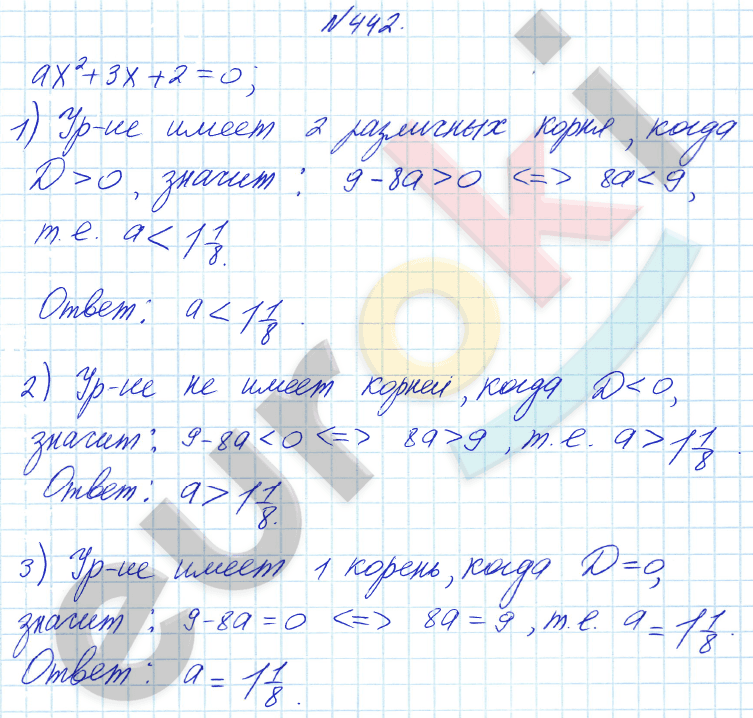 №442.
ax²+3x+2=0;
1) Ур-ие имеет 2 различных корня, когда
D>0, значит: 9-8a>0 <=> 8a<9,
т.е. a<1 1/8.
Ответ: a<1 1/8.
2) Ур-ие не имеет корней, когда D<0,
значит: 9-8a<0 <=> 8a>9, т.е. a>1 1/8.
Ответ: a>1 1/8.
3) Ур-ие имеет 1 корень, когда D=0,
значит: 9-8a=0 <=> 8a=9, т.е. a=1 1/8.
Ответ: a=1 1/8.
euroki